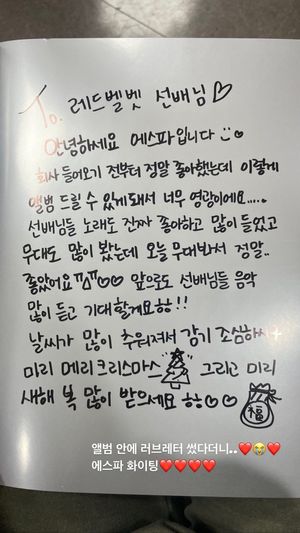 To. 레드벨벳 선배님♡
안녕하세요 에스파입니다 :)
회사 들어오기 전부터 정말 좋아했는데 이렇게
앨범 드릴 수 있게돼서 너무 영광이에요.....
선배님들 노래도 진짜 좋아하고 많이 들었고
무대도 많이 봤는데 오늘 무대봐서 정말..
좋았어요ㅠㅠ♡♡ 앞으로도 선배님들 음악
많이 듣고 기대할게요ㅎㅎ!!
날씨가 많이 추워져서 감기 조심하시구
미리 메리크리스마스 그리고 미리
새해 복 많이 받으세요 ㅎㅎ♡♡
福
앨범 안에 러브레터 썼다더니..❤️😭❤️
에스파 화이팅❤️❤️❤️❤️